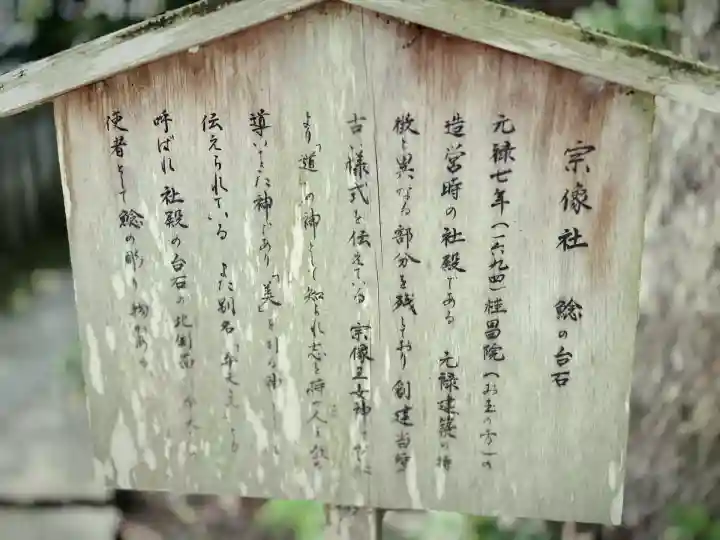 宗像社 鯰の台石
元禄七年(一六九四)桂昌院(お玉の方)の
造営時の社殿である 元禄建築の特
徴と異なる部分を残しており創建当時
古い様式を伝えている 宗像三女神は
より「道」の神として知られ志を持つ人を
導いてきた神であり「美」を
伝えられている また別名
呼ばれ 社殿の台石の北側
使者として鯰の彫り物